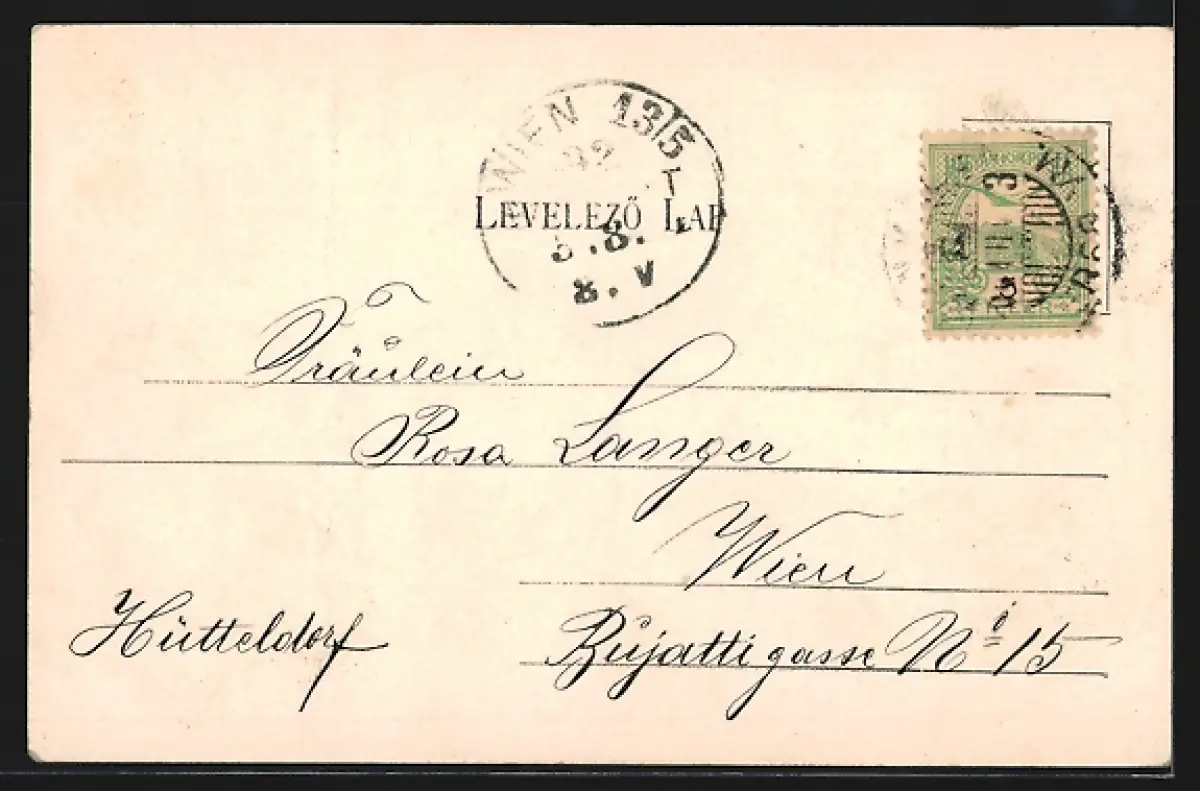 WIEN 13/5
LEVELEZŐ LAP
8. V
Fräulein
Rosa Langer
Wien
Hütteldorf
Bujattigasse No 15